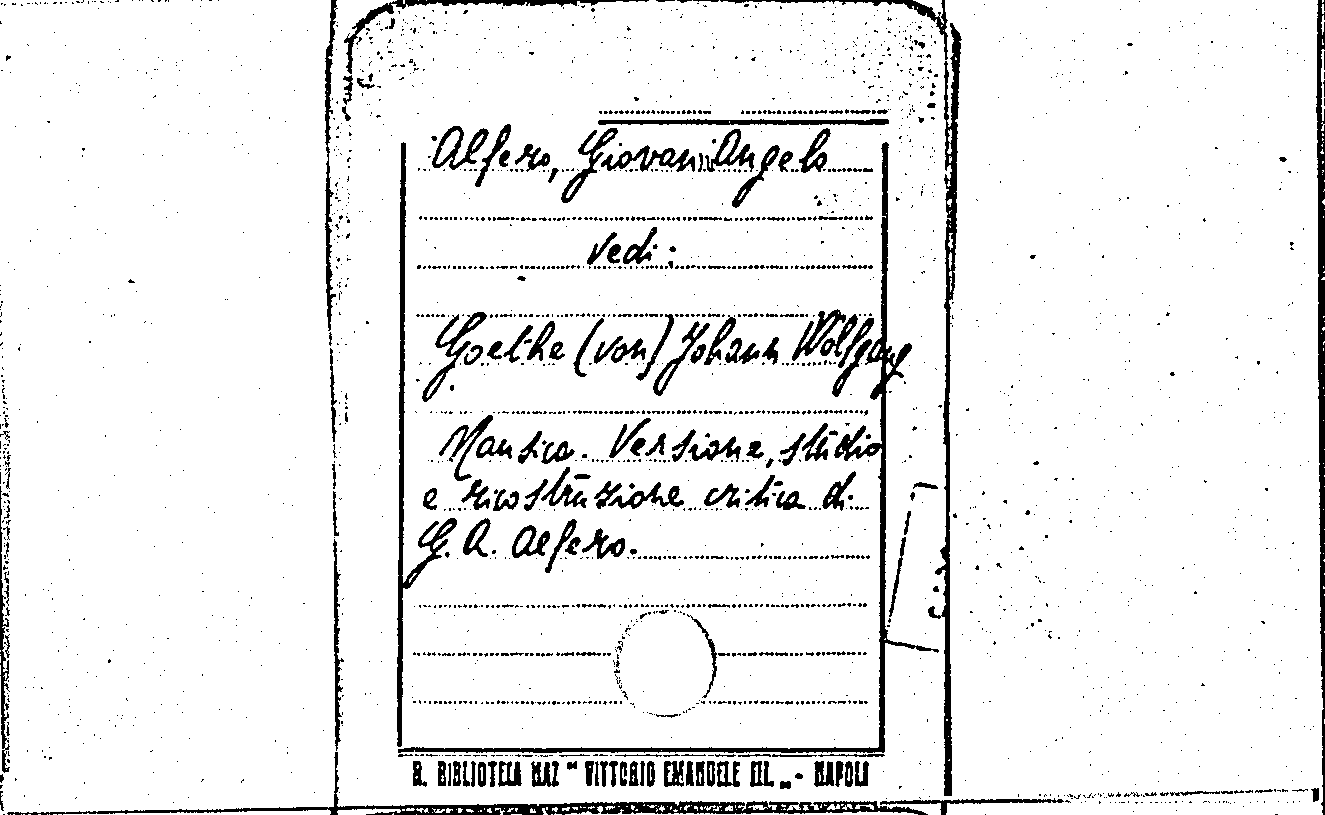 Alfero, Giovanni Angelo
vedi:
Goethe (von) Johann Wolfgang
Nausica. Versione, studio
e ricostruzione critica di
G. A. Alfero.
R. BIBLIOTECA NAZ "VITTORIO EMANUELE III„ - NAPOLI